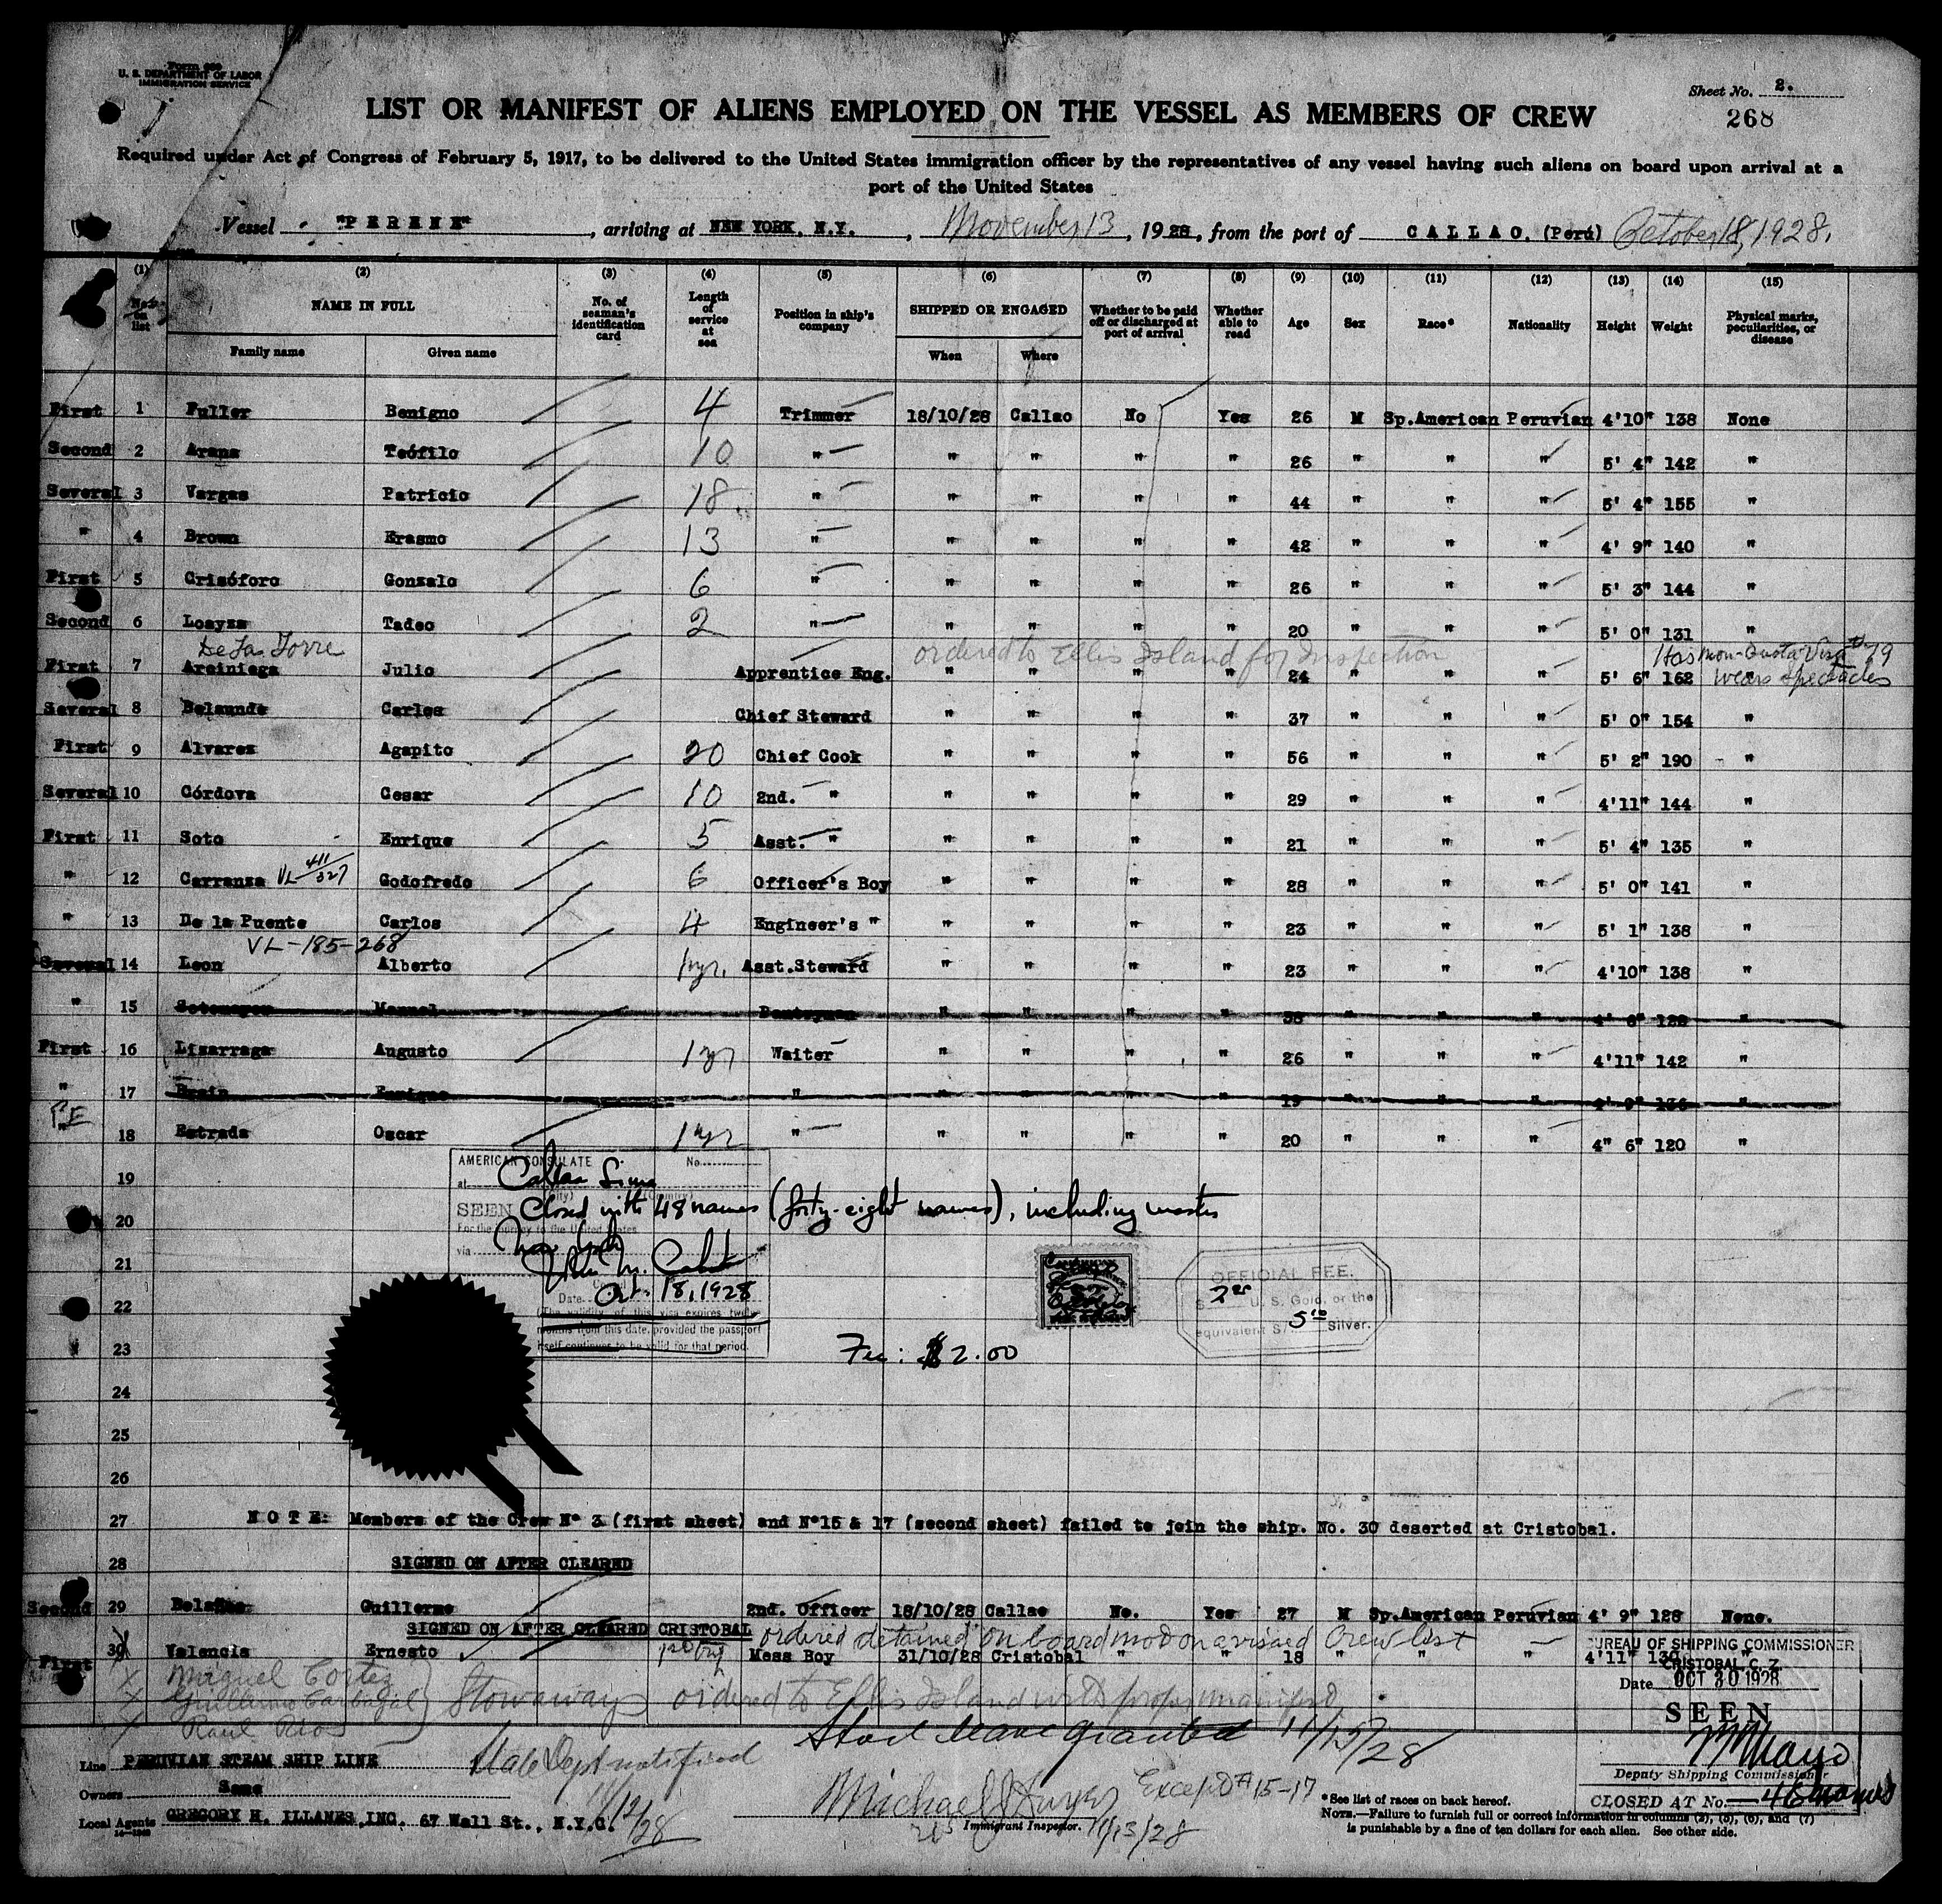 Form 689
U. S. DEPARTMENT OF LABOR
IMMIGRATION SERVICE
Sheet No. 2.
268
LIST OR MANIFEST OF ALIENS EMPLOYED ON THE VESSEL AS MEMBERS OF CREW
Required under Act of Congress of February 5, 1917, to be delivered to the United States immigration officer by the representatives of any vessel having such aliens on board upon arrival at a
port of the United States
Vessel "PERENE", arriving at NEW YORK, N.Y., November 13, 1928, from the port of CALLAO. (Perú) October 18, 1928.
(1) (2) (3) (4) (5) (6) (7) (8) (9) (10) (11) (12) (13) (14) (15)
No. on list NAME IN FULL Family name Given name No. of seaman's identification card Length of service at sea Position in ship's company SHIPPED OR ENGAGED When Where Whether to be paid off or discharged at port of arrival Whether able to read Age Sex Race* Nationality Height Weight Physical marks, peculiarities, or disease
First 1 Fuller Benigno 4 Trimmer 18/10/28 Callao No Yes 26 M Sp.American Peruvian 4'10" 138 None
Second 2 Arana Teófilo 10 " " " " " 26 " " " 5' 4" 142 "
Several 3 Vargas Patricio 18 " " " " " 44 " " " 5' 4" 155 "
" 4 Brown Erasmo 13 " " " " " 42 " " " 4' 9" 140 "
First 5 Crisóforo Gonzalo 6 " " " " " 26 " " " 5' 3" 144 "
Second 6 Loayza Tadeo 2 " " " " " 20 " " " 5' 0" 131 "
De La Torre ordered to Ellis Island for Inspection Has non-Quota Visa # 79
First 7 Areiniega Julio Apprentice Eng. " " " " 24 " " " 5' 6" 162 " wears spectacles
Several 8 Belaunde Carlos Chief Steward " " " " 37 " " " 5' 0" 154 "
First 9 Alvarez Agapito 20 Chief Cook " " " " 56 " " " 5' 2" 190 "
Several 10 Córdova Cesar 10 2nd. " " " " " 29 " " " 4'11" 144 "
First 11 Soto Enrique 5 Asst. " " " " " 21 " " " 5' 4" 135 "
" 12 Carranza VL 411/327 Godofredo 6 Officer's Boy " " " " 28 " " " 5' 0" 141 "
" 13 De la Puente Carlos 4 Engineer's " " " " " 23 " " " 5' 1" 138 "
VL-185-268
Several 14 Leon Alberto 1 yr. Asst.Steward " " " " 23 " " " 4'10" 138 "
" 15 Sotomayor Manuel " " " " " " " 4' 8" 128 "
First 16 Lizarraga Augusto 1 yr Waiter " " " " 26 " " " 4'11" 142 "
" 17 Enrique " " " " " 19 " " " 4' 9" 136 "
PE
" 18 Estrada Oscar 1 yr " " " " " 20 " " " 4" 6" 120 "
AMERICAN CONSULATE No.
19 at Callao Lima
(City) (Country)
20 SEEN Closed with 48 names (forty-eight names), including master
For the journey to the United States
via New York
21
Date Oct. 18, 1928
22 (The validity of this visa expires twelve
months from this date, provided the passport
itself continues to be valid for that period.
OFFICIAL FEE.
$ 2 U. S. Gold, or the
equivalent S/ 5 Silver.
23 Fee: $2.00
24
25
26
27 NOTE: Members of the Crew Nº 3 (first sheet) and Nº15 & 17 (second sheet) failed to join the ship. No. 30 deserted at Cristobal.
28 SIGNED ON AFTER CLEARED
Second 29 Guillermo 2nd. Officer 18/10/28 Callao No. Yes 27 M Sp.American Peruvian 4' 9" 128 None.
SIGNED ON AFTER CLEARED CRISTOBAL ordered detained on board not on a visaed Crew list
First 30 Valencia Ernesto Mess Boy 31/10/28 Cristobal " " 18 " " " 4'11" 130
X Miguel Cortez
X Guillermo Carbajal Stowaways ordered to Ellis Island with proper manifest
X Raul Rios
BUREAU OF SHIPPING COMMISSIONER
CRISTOBAL C. Z.
Date OCT 30 1928
SEEN
Deputy Shipping Commissioner
CLOSED AT No. 46 names
Shore leave granted 11/15/28
Line PERUVIAN STEAM SHIP LINE
State Dept notified
11/12/28
Owners Same
Local Agents GREGORY H. ILLANES, INC. 67 Wall St., N.Y.C.
14-1240
Michael J Dwyer Except # 15-17
Immigrant Inspector. 11/13/28
*See list of races on back hereof.
NOTE.—Failure to furnish full or correct information in columns (2), (5), (6), and (7)
is punishable by a fine of ten dollars for each alien. See other side.